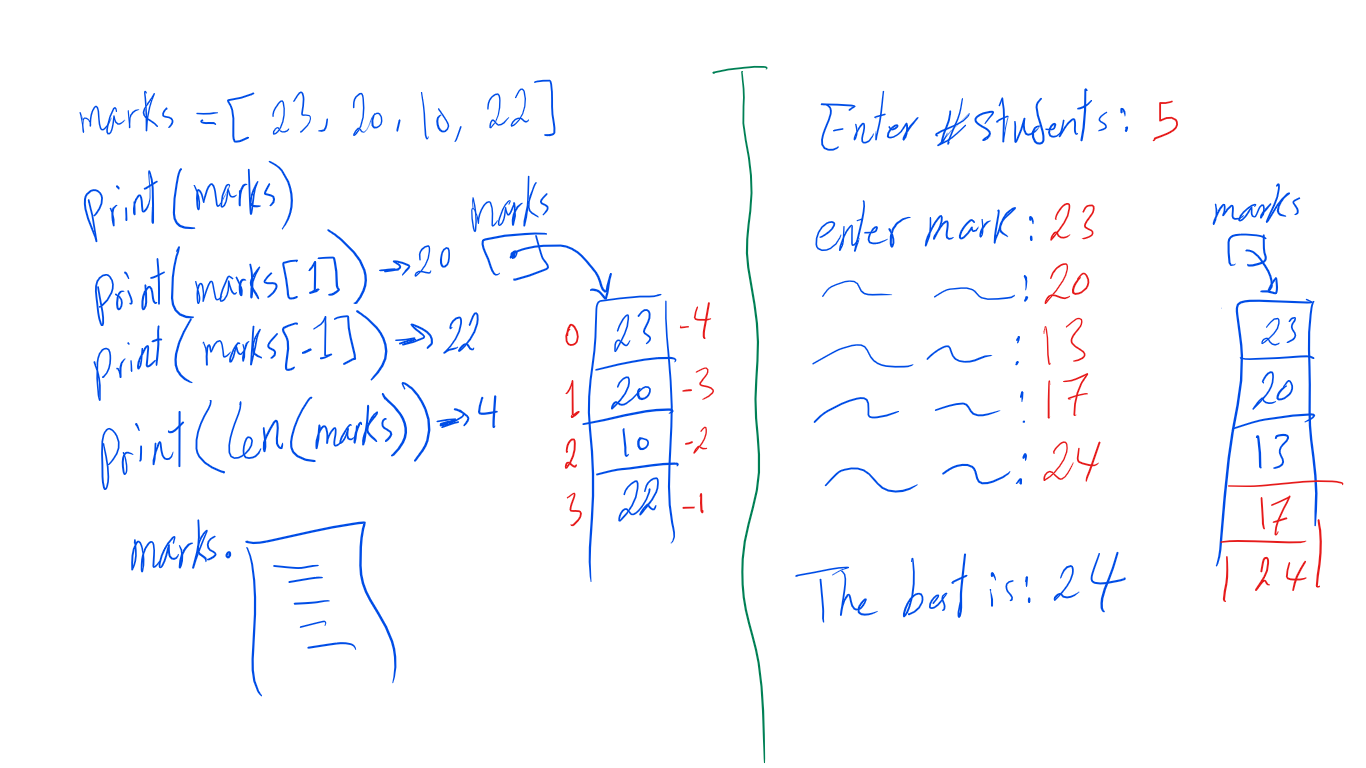 marks = [ 23, 20, 10, 22 ]
Print(marks)
Print(marks[1]) → 20
Print(marks[-1]) → 22
Print(len(marks)) → 4
marks.
marks
0 23 -4
1 20 -3
2 10 -2
3 22 -1
Enter #students: 5
enter mark: 23
: 20
: 13
: 17
: 24
The best is: 24
marks
23
20
13
17
24